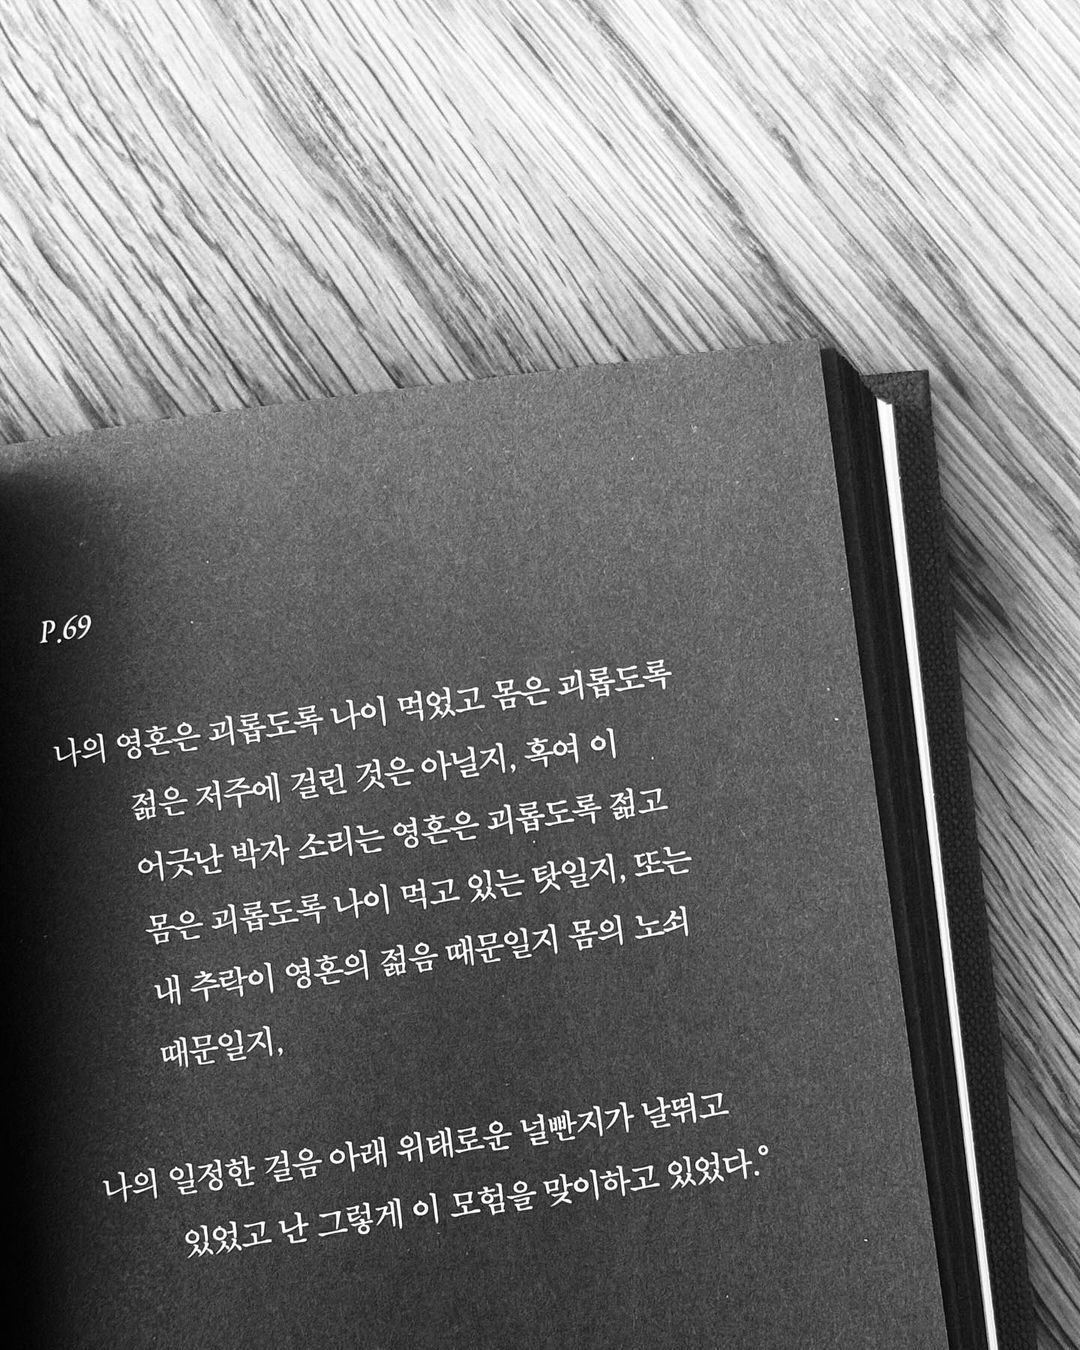 P.69
나의 영혼은 괴롭도록 나이 먹었고 몸은 괴롭도록
젊은 저주에 걸린 것은 아닐지, 혹여 이
어긋난 박자 소리는 영혼은 괴롭도록 젊고
몸은 괴롭도록 나이 먹고 있는 탓일지, 또는
내 추락이 영혼의 젊음 때문일지 몸의 노쇠
때문일지,
나의 일정한 걸음 아래 위태로운 널빤지가 날뛰고
있었고 난 그렇게 이 모험을 맞이하고 있었다.°